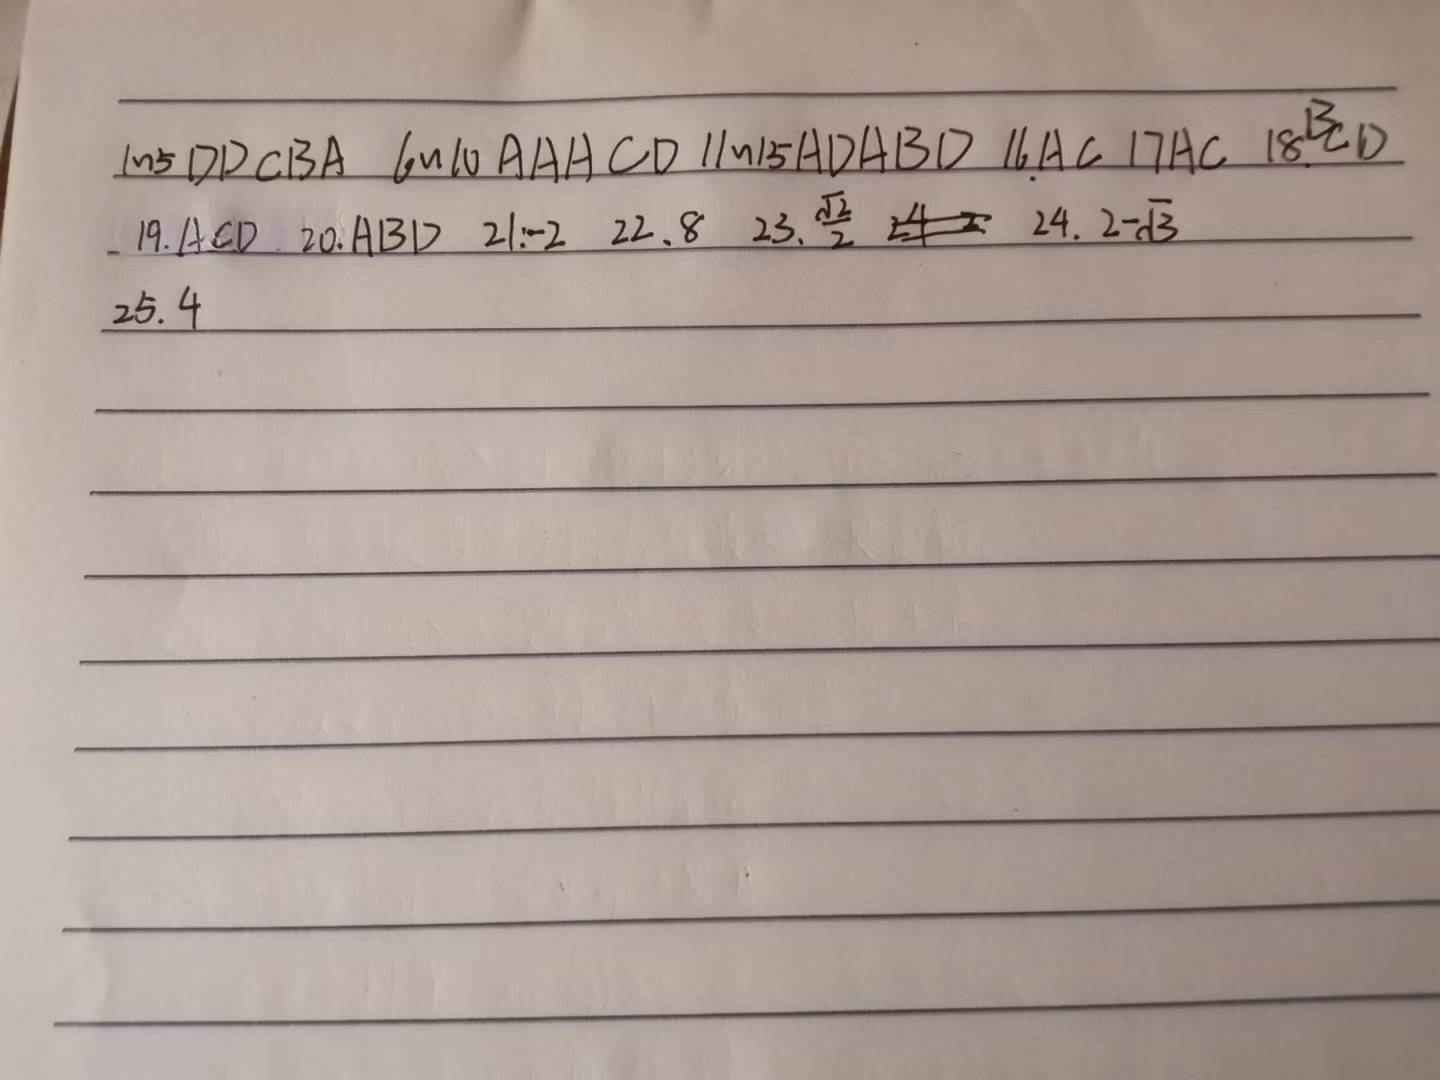 1~5 DDCBA 6~10 AAACD 11~15 ADABD 16.AC 17AC 18.BCD
19.ACD 20.ABD 21.-2 22.8 23.√2/2 24. 2-√3
25.4